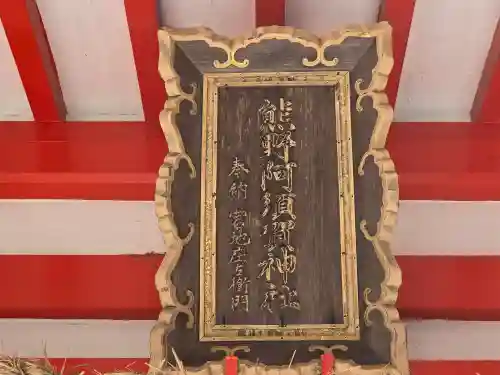 熊野阿須賀神社
奉納 宮地庄左衛門